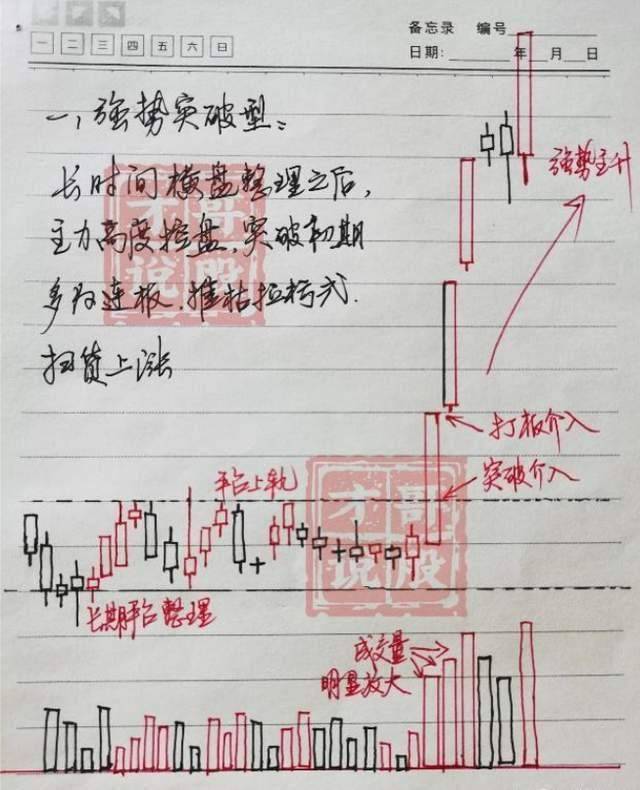 备忘录 编号
一 二 三 四 五 六 日
日期: 年 月 日
一、强势突破型:
长时间横盘整理之后,
主力高度控盘,突破初期
多为连板,摧枯拉朽式
扫货上涨
强势主升
打板介入
突破介入
平台上轨
长期平台整理
成交量
明显放大
才哥
说股
才哥
说股